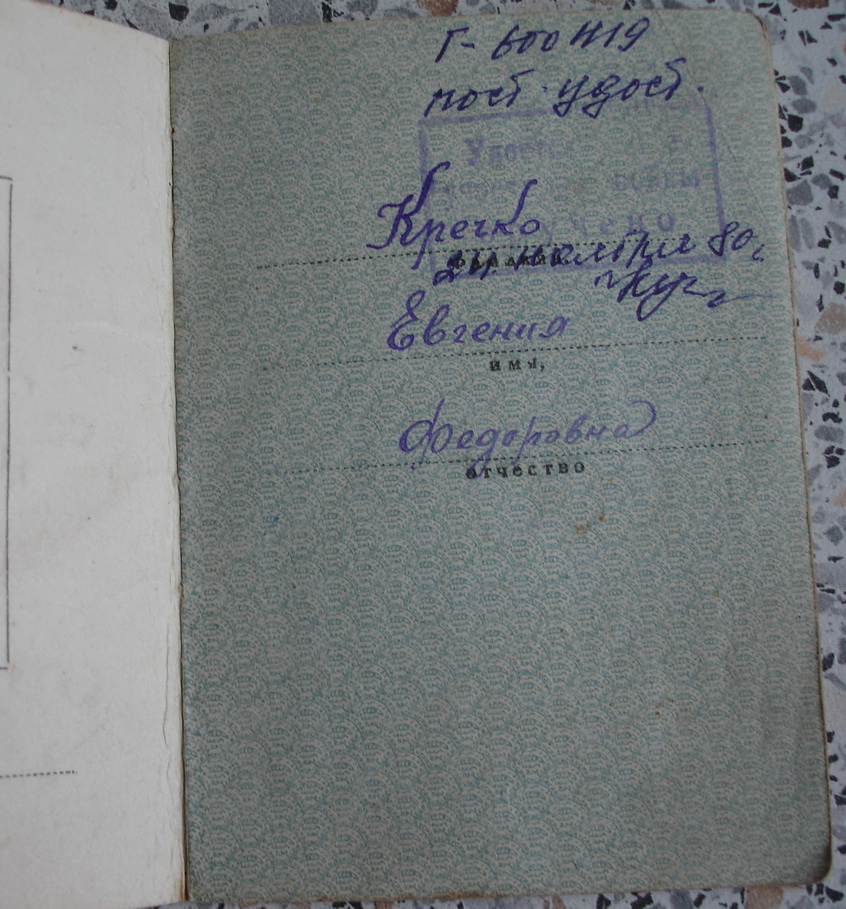 Г-600419
пост. удост.
войны
Кречко
фамилия
24 80г.
Евгения
имя,
Федоровна
отчество